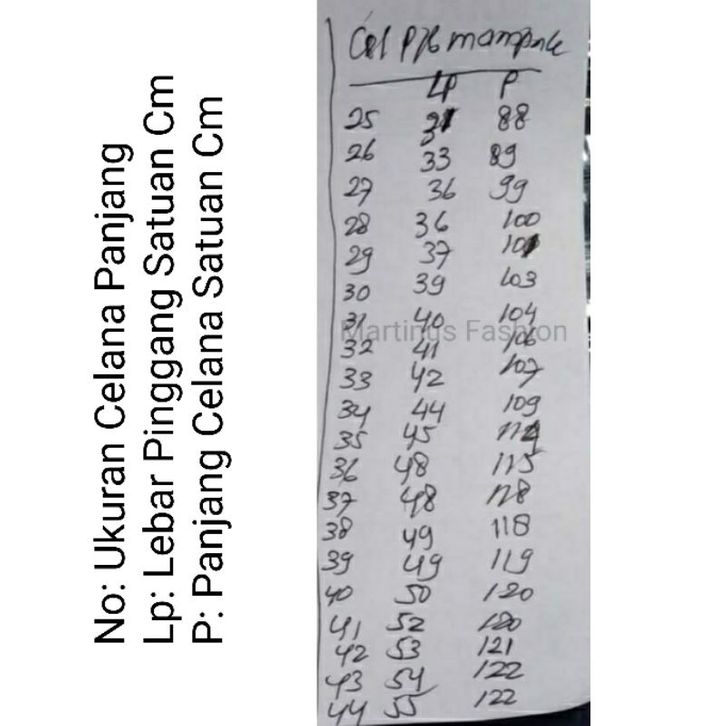 No: Ukuran Celana Panjang
Lp: Lebar Pinggang Satuan Cm
P: Panjang Celana Satuan Cm
Cel pjg
LP P
25 31 88
26 33 89
27 36 99
28 36 100
29 37 101
30 39 103
31 40 104
Martinus Fashion
32 41 106
33 42 107
34 44 109
35 45
36 48 115
37 48 118
38 49 118
39 49 119
40 50 120
41 52 120
42 53 121
43 54 122
44 55 122